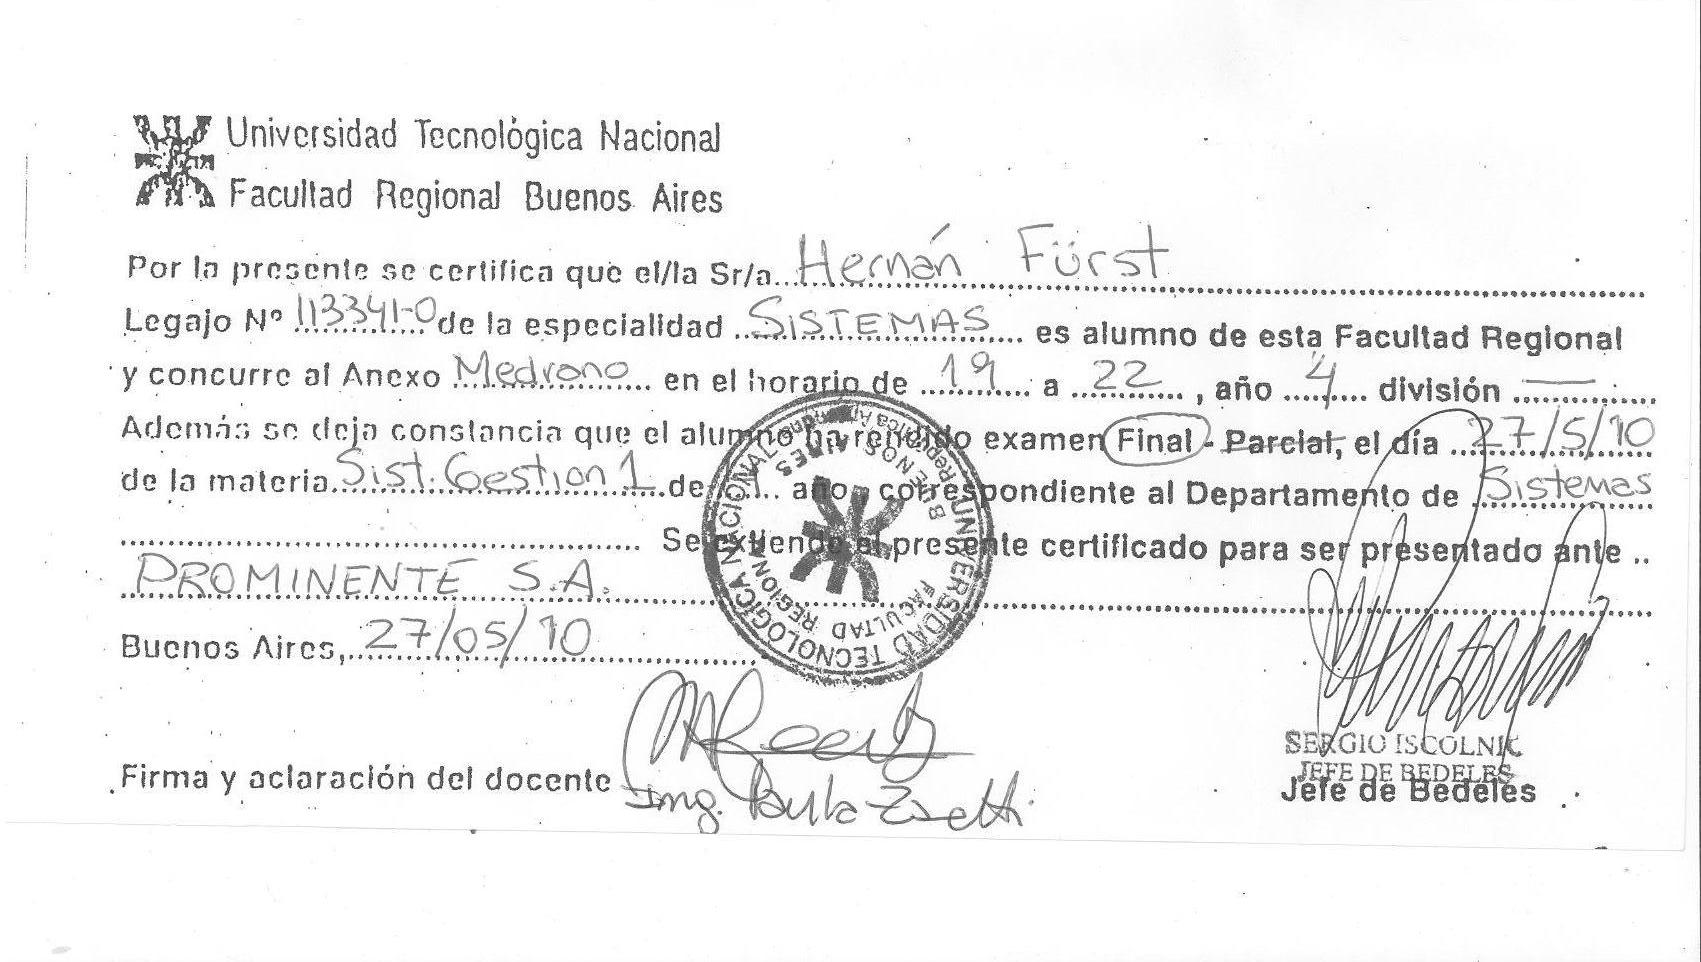 Universidad Tecnológica Nacional
Facultad Regional Buenos Aires
Por la presente se certifica que el/la Sr/a Hernán Fürst
Legajo Nº 113341-0 de la especialidad SISTEMAS es alumno de esta Facultad Regional
y concurre al Anexo Medrano en el horario de 19 a 22, año 4 división —
Además se deja constancia que el alumno ha rendido examen Final - Parcial, el día 27/5/10
de la materia Sist. Gestion 1 de 1 año, correspondiente al Departamento de Sistemas
Se extiende el presente certificado para ser presentado ante ..
PROMINENTE S.A.
Buenos Aires, 27/05/10
UNIVERSIDAD TECNOLOGICA NACIONAL
FACULTAD REGIONAL BUENOS AIRES
Firma y aclaración del docente Ing. Paula
SERGIO ISCOLNIC
JEFE DE BEDELES
Jefe de Bedeles